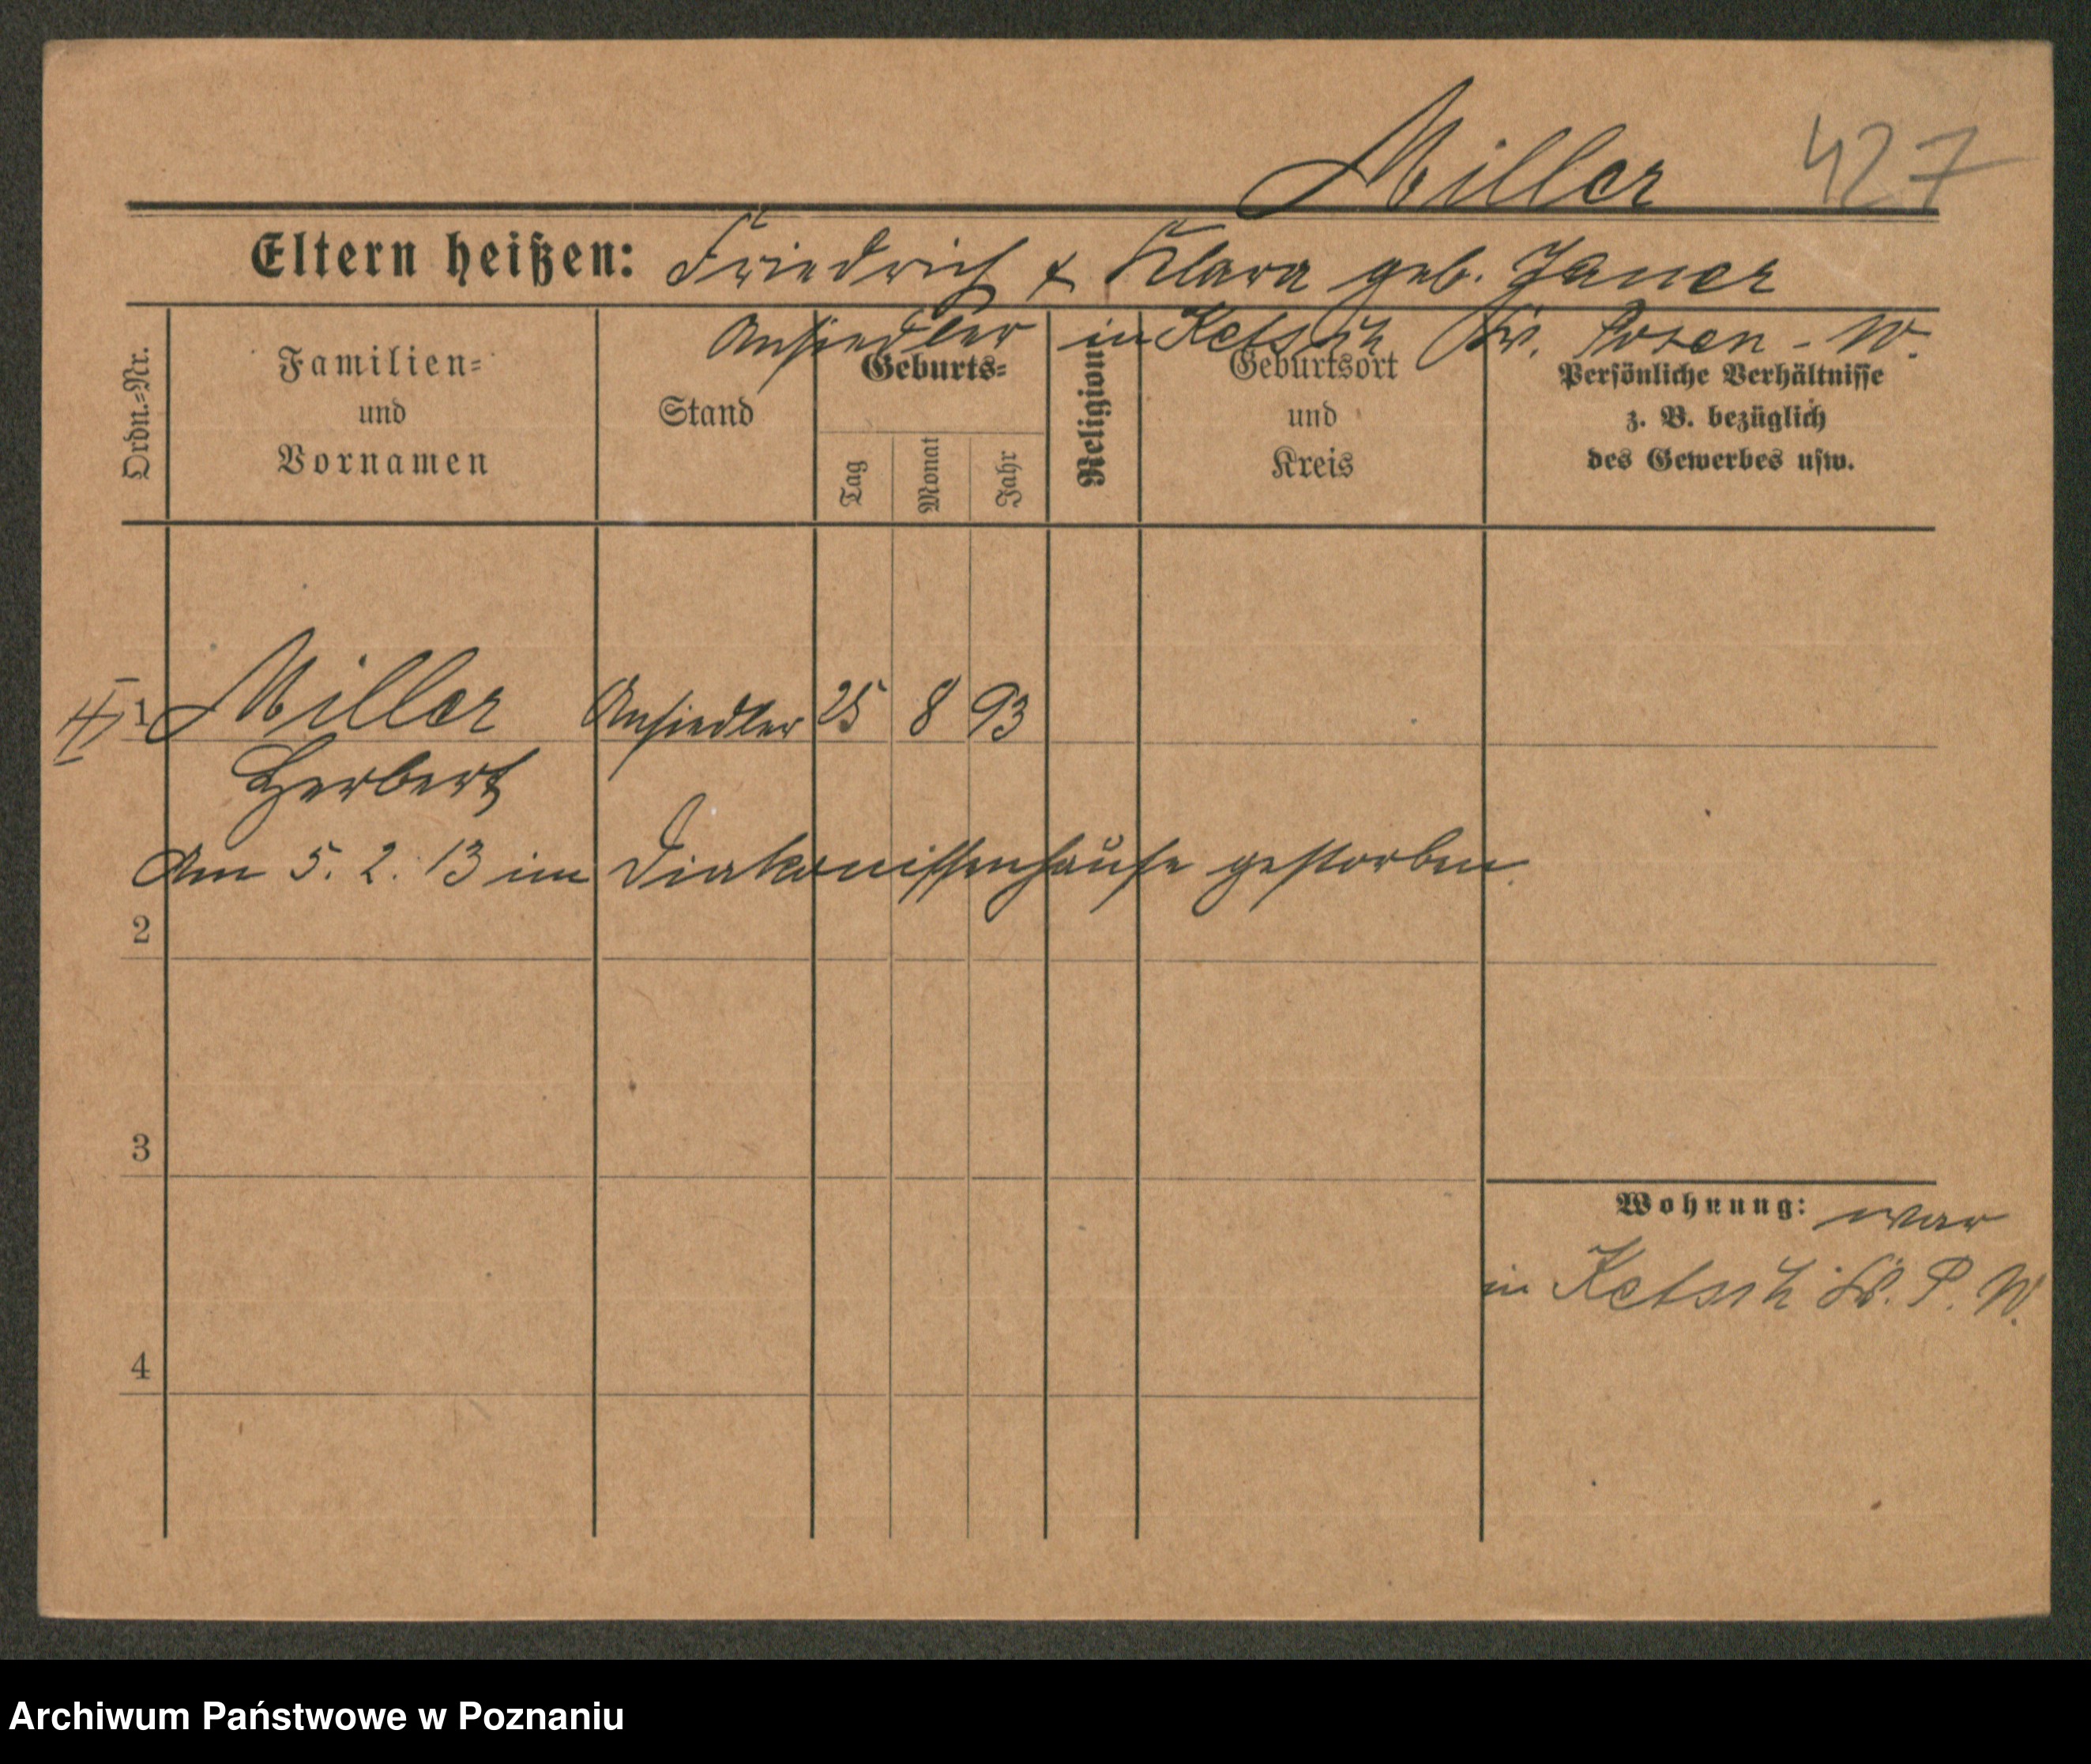 Miller 427
Eltern heißen: Friedrich & Klara geb. Janer
Ansiedler in Ketsch Kr. Posen-W.
Ordn.-Nr.
Familien-
und
Vornamen
Stand
Geburts-
Tag
Monat
Jahr
Religion
Geburtsort
und
Kreis
Persönliche Verhältnisse
z. B. bezüglich
des Gewerbes usw.
1 Miller Ansiedler 25 8 93
Herbert
Am 5. 2. 13 im Diakonissenhause gestorben.
2
3
Wohnung: war
in Ketsch Kr. P. W.
4
Archiwum Państwowe w Poznaniu